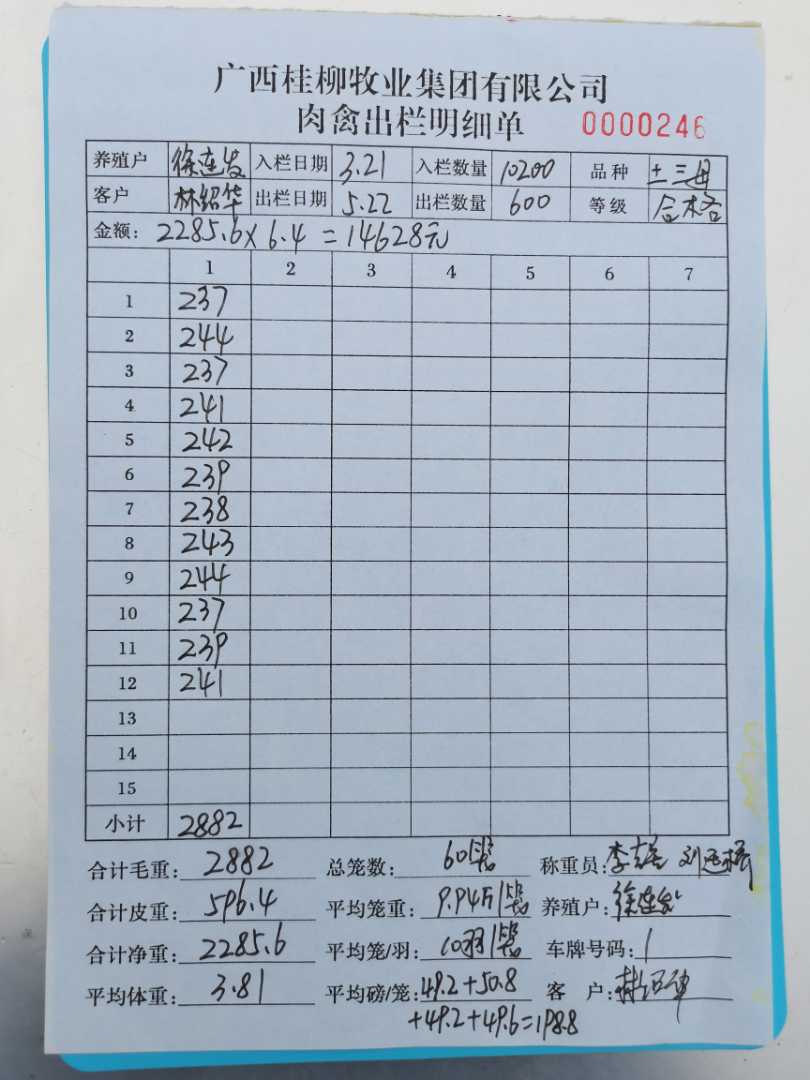 广西桂柳牧业集团有限公司
肉禽出栏明细单 0000246
养殖户 徐连发 入栏日期 3.21 入栏数量 10200 品种 土三母
客户 林绍华 出栏日期 5.22 出栏数量 600 等级 合格
金额: 2285.6×6.4=14628元
1 2 3 4 5 6 7
1 237
2 244
3 237
4 241
5 242
6 239
7 238
8 243
9 244
10 237
11 239
12 241
13
14
15
小计 2882
合计毛重: 2882 总笼数: 60 称重员: 李
合计皮重: 596.4 平均笼重: 9.94斤/ 养殖户: 徐连发
合计净重: 2285.6 平均笼/羽: 10羽/ 车牌号码: /
平均体重: 3.81 平均磅/笼: 49.2+50.8 客 户:
+49.2+49.6=198.8